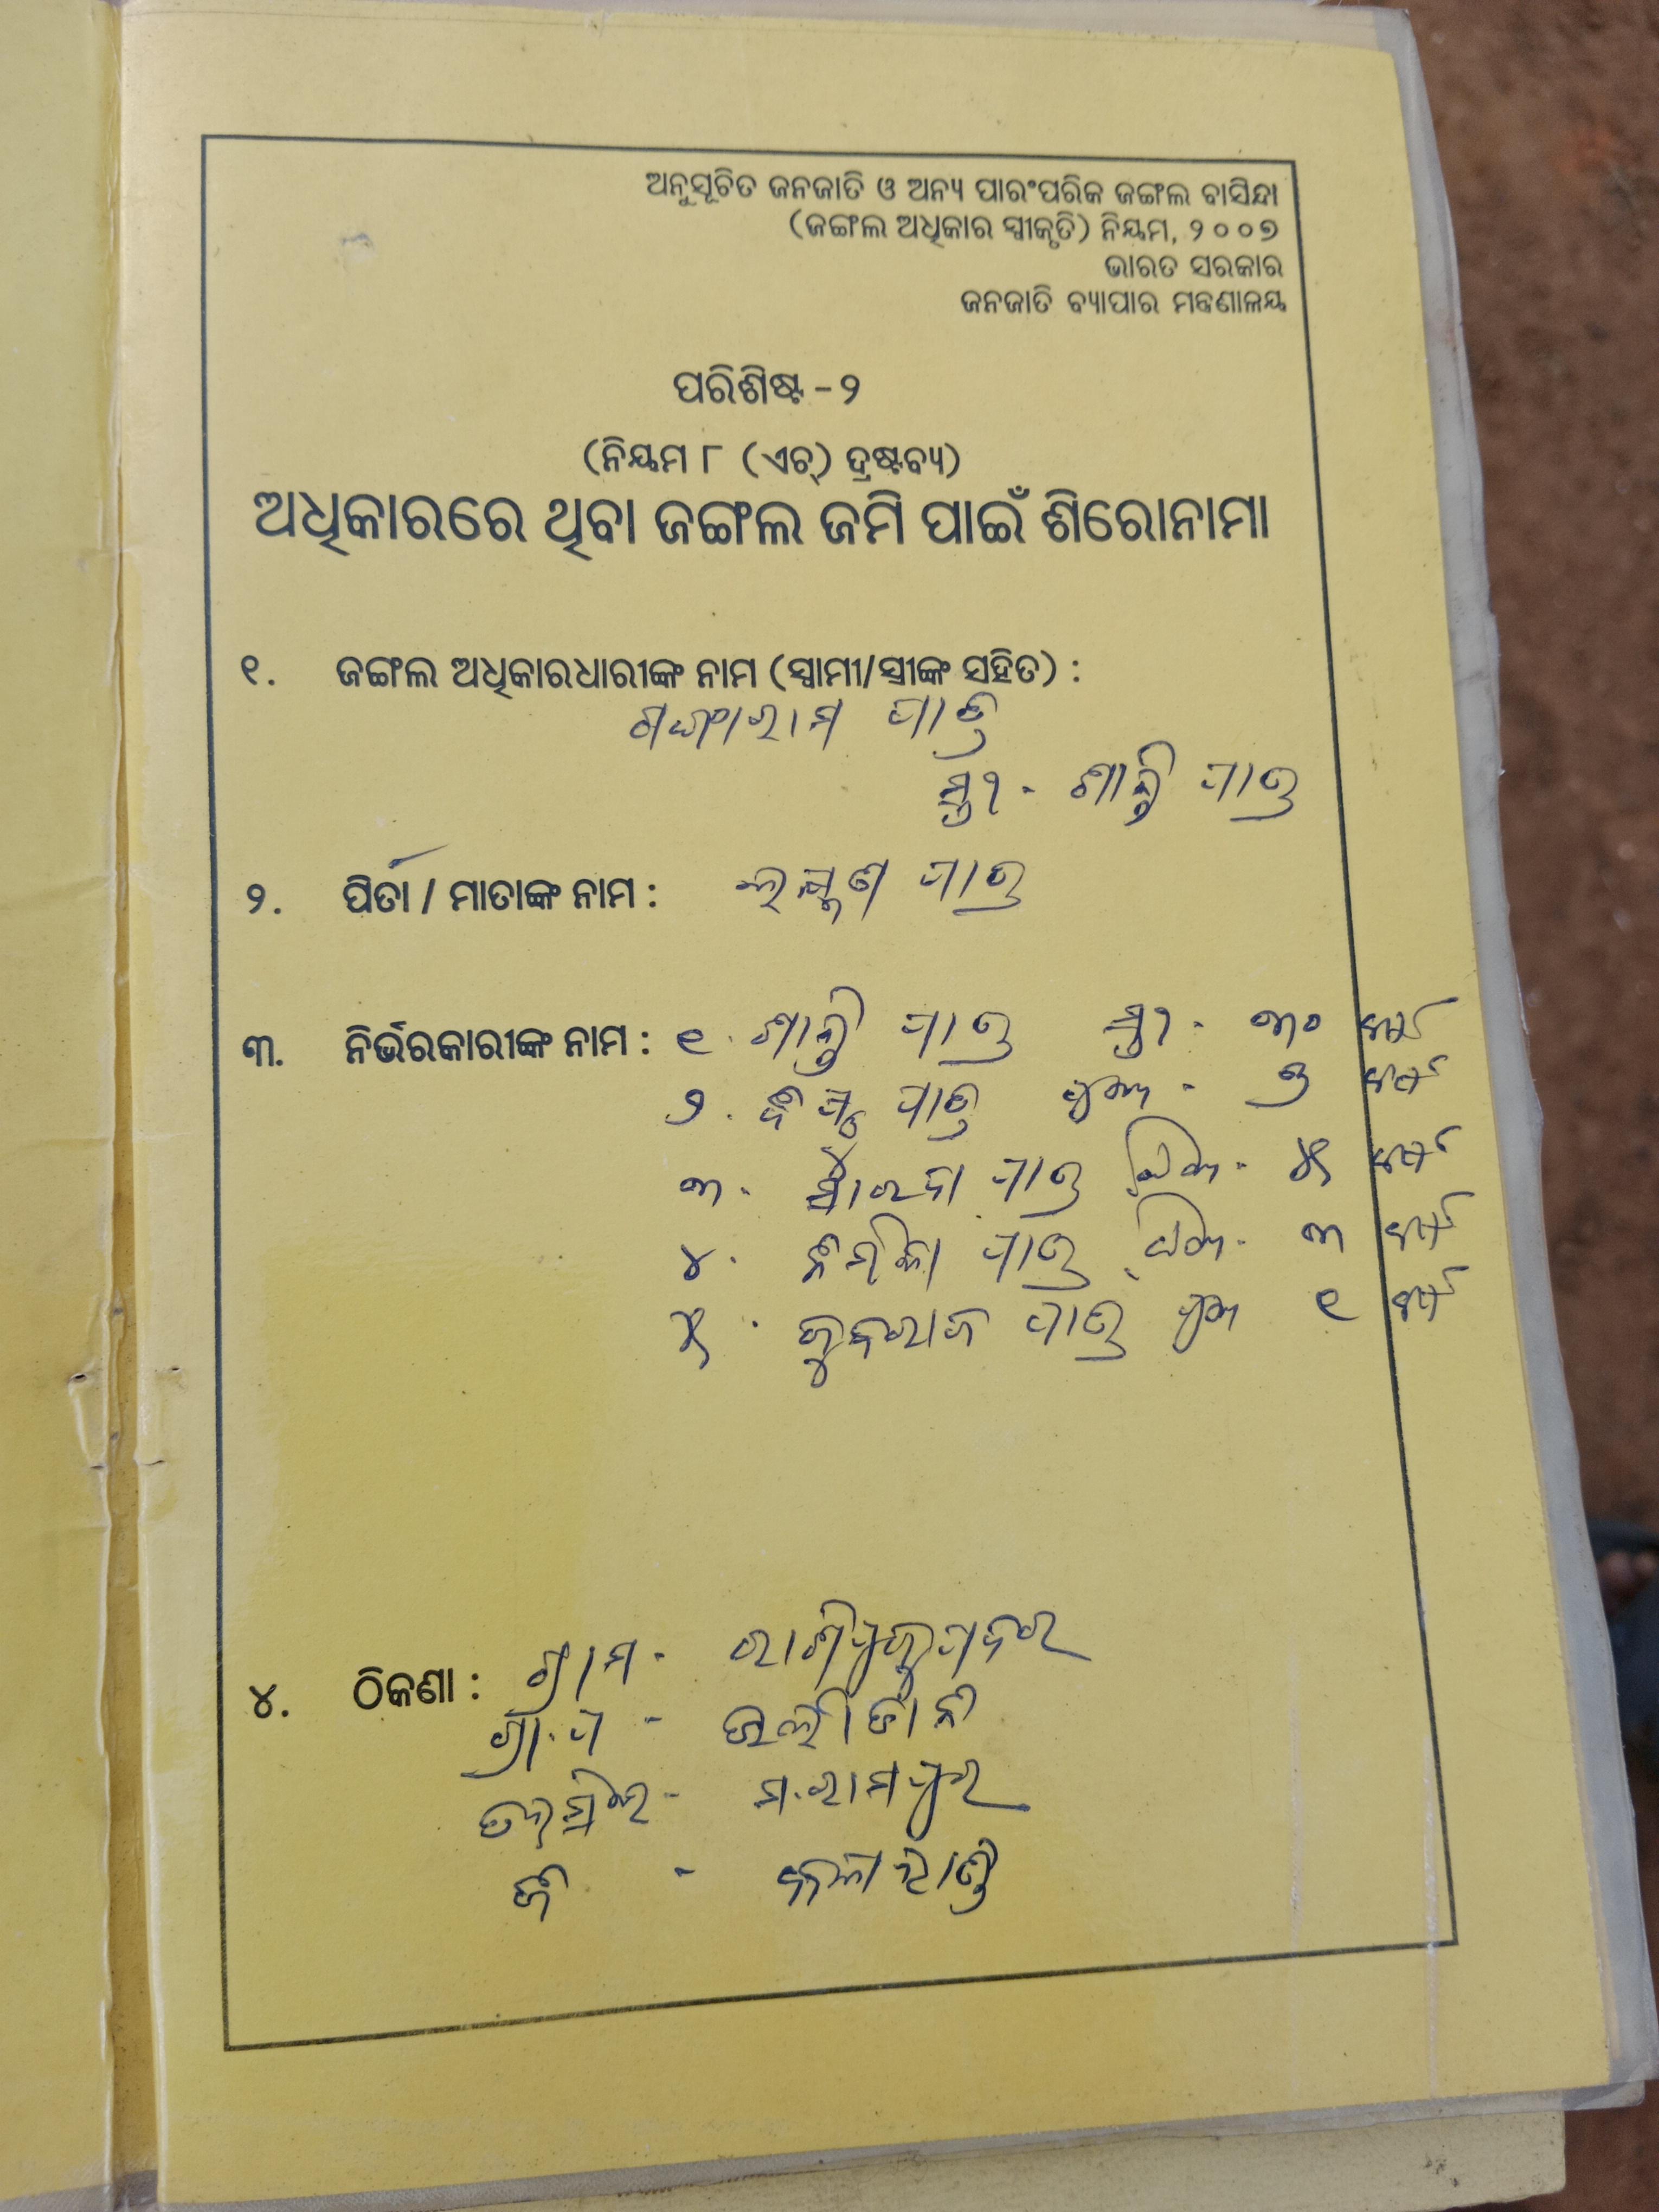 ଅନୁସୂଚିତ ଜନଜାତି ଓ ଅନ୍ୟ ପାରଂପରିକ ଜଙ୍ଗଲ ବାସିନ୍ଦା
(ଜଙ୍ଗଲ ଅଧିକାର ସ୍ଵୀକୃତି) ନିୟମ, ୨୦୦୭
ଭାରତ ସରକାର
ଜନଜାତି ବ୍ୟାପାର ମନ୍ତ୍ରଣାଳୟ
ପରିଶିଷ୍ଟ - ୨
(ନିୟମ ୮ (ଏଚ୍) ଦ୍ରଷ୍ଟବ୍ୟ)
ଅଧିକାରରେ ଥିବା ଜଙ୍ଗଲ ଜମି ପାଇଁ ଶିରୋନାମା
୧. ଜଙ୍ଗଲ ଅଧିକାରଧାରୀଙ୍କ ନାମ (ସ୍ଵାମୀ/ସ୍ତ୍ରୀଙ୍କ ସହିତ) :
ଗଙ୍ଗାରାମ ପାତ୍ର
ସ୍ତ୍ରୀ - ଶାନ୍ତି ପାତ୍ର
୨. ପିତା / ମାତାଙ୍କ ନାମ : ଲକ୍ଷ୍ମଣ ପାତ୍ର
୩. ନିର୍ଭରକାରୀଙ୍କ ନାମ : ୧. ଶାନ୍ତି ପାତ୍ର ସ୍ତ୍ରୀ - ୩୦ ବର୍ଷ
୨. ପାତ୍ର ପୁଅ - ୬ ବର୍ଷ
୩. ପାତ୍ର ଝିଅ - ୪୧ ବର୍ଷ
୪. ପାତ୍ର ଝିଅ - ୩ ବର୍ଷ
୫. ପାତ୍ର ପୁଅ ୧ ବର୍ଷ
୪. ଠିକଣା : ଗ୍ରାମ -
ଗ୍ରା.ପ -
ତହସିଲ - ମ.ରାମପୁର
ଜି - କଳାହାଣ୍ଡି